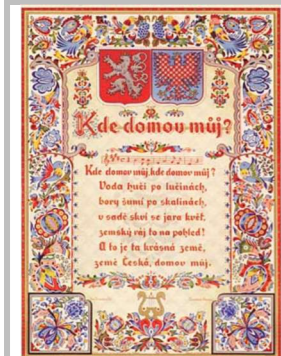 Kde domov můj?
Kde domov můj, kde domov můj?
Voda hučí po lučinách,
bory šumí po skalinách,
v sadě skví se jara květ,
zemský ráj to na pohled!
A to je ta krásná země,
země česká, domov můj.